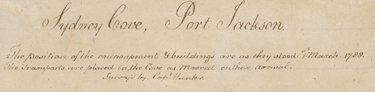 Sydney Cove, Port Jackson.
The position of the encampment & buildings are as they stood 1st March 1788.
The Transports are placed in the Cove as Moored on their arrival.
Survey'd by Capt. Hunter